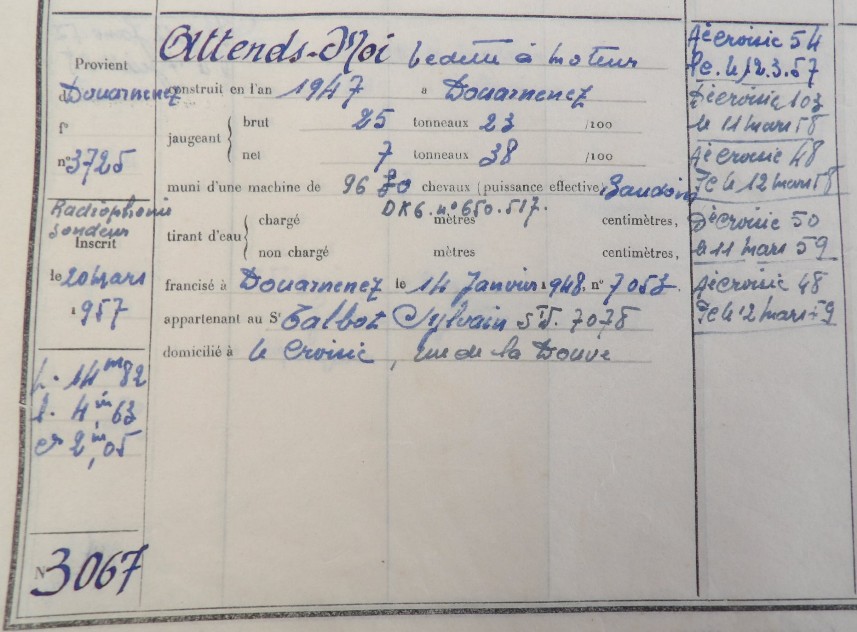 Provient
de Douarnenez
f°
n° 3725
Radiophonie
Sondeur
Inscrit
le 20 mars
1957
L. 14 m 82
l. 4 m, 63
cx 2 m, 05
N° 3067
Attends-Moi à moteur
construit en l'an 1947 a Douarnenez
jaugeant { brut 25 tonneaux 23 /100
net 7 tonneaux 38 /100
muni d'une machine de 96 chevaux (puissance effective) Baudoin
DK6. n° 650.517.
tirant d'eau { chargé mètres centimètres,
non chargé mètres centimètres,
francisé à Douarnenez le 14 Janvier 1948. n° 7053.
appartenant au Sr Talbot Sylvain 7078
domicilié à le Croisic, rue de la Douve
Croisic 54
le 12.3.57
Croisic 103
le 11 mars 58
Croisic 48
le 12 mars 58
Croisic 50
le 11 mars 59
Croisic 48
le 12 mars 59